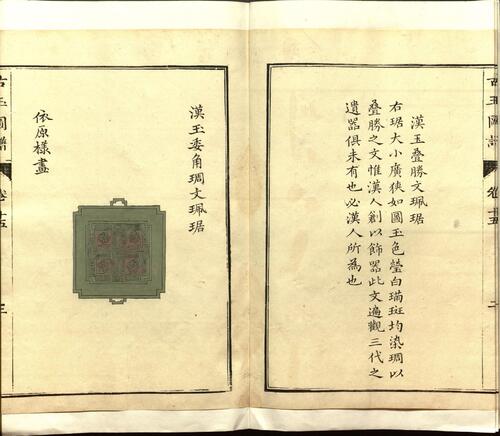 漢玉叠勝文珮琚
右琚大小廣狹如圖玉色瑩白璊斑均染琱以
叠勝之文惟漢人創以飾器此文遍觀三代之
遺器俱未有也必漢人所為也
古玉圖譜
卷十五
二
漢玉委角琱文珮琚
依原樣畫
古玉圖譜
卷十五
三